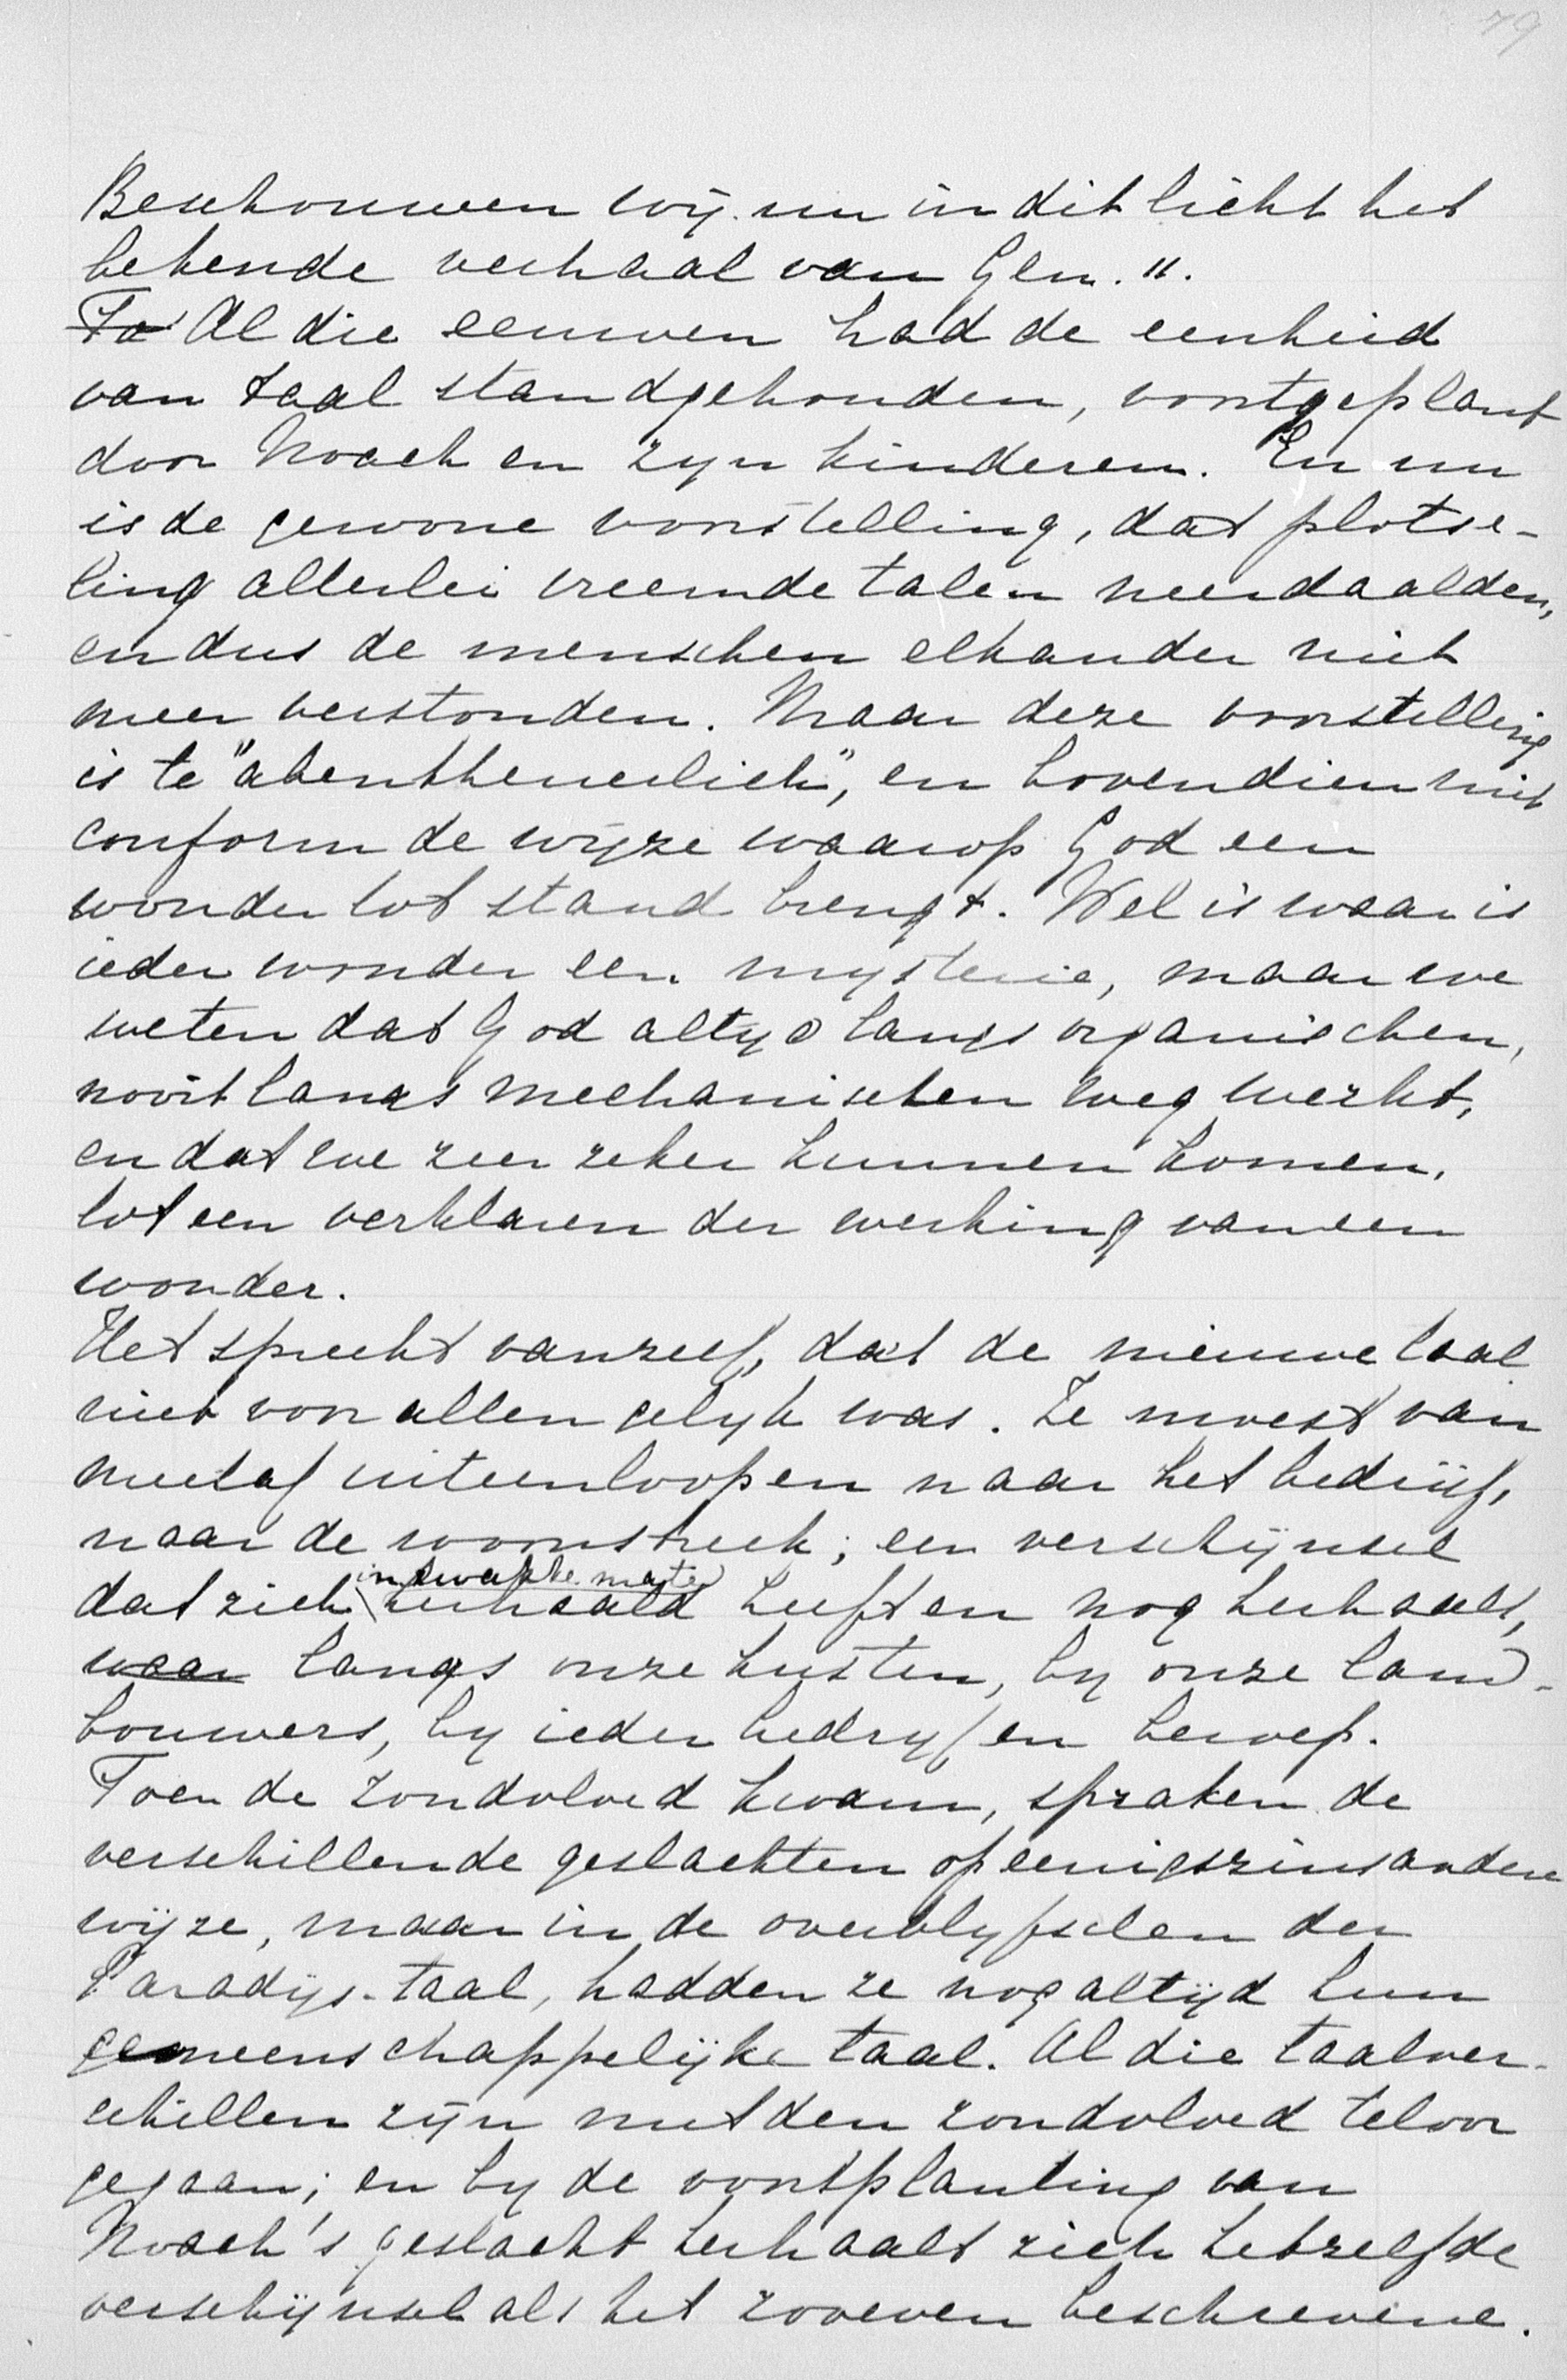 79
Beschouwen wij nu in dit licht het
bekende verhaal van Gen. 11.
To Al die eeuwen had de eenheid
van taal standgehouden, voortgeplant
door Noach en zyn kinderen. En nu
is de gewone voorstelling, dat plotse-
ling allerlei vreemde talen neerdaalden,
en dus de menschen elkander niet
meer verstonden. Maar deze voorstelling
is te "abentheuerlich", en bovendien niet
conform de wijze waarop God een
wonder tot stand brengt. Wel is waar is
ieder wonder een mysterie, maar we
weten dat God altyd langs organischen,
nooit langs mechanischen weg werkt,
en dat we zeer zeker kunnen komen,
tot een verklaren der werking van een
wonder.
Het spreekt vanzelf, dat de nieuwe taal
niet voor allen gelyk was. Ze moest van
meetaf uiteenloopen naar het bedrijf,
naar de woonstreek; een verschijnsel
in zwakke mate
dat zich herhaald heeft en nog herhaalt,
waar langs onze kusten, by onze land-
bouwers, by ieder bedryf en beroep.
Toen de zondvloed kwam, spraken de
verschillende geslachten op eenigszins andere
wijze, maar in de overblyfselen der
Paradijs-taal, hadden ze nog altijd hun
gemeenschappelijke taal. Al die taalver-
schillen zijn met den zondvloed teloor
gegaan; en by de voortplanting van
Noach's geslacht herhaalt zich hetzelfde
verschijnsel als het zoveven beschrevene.